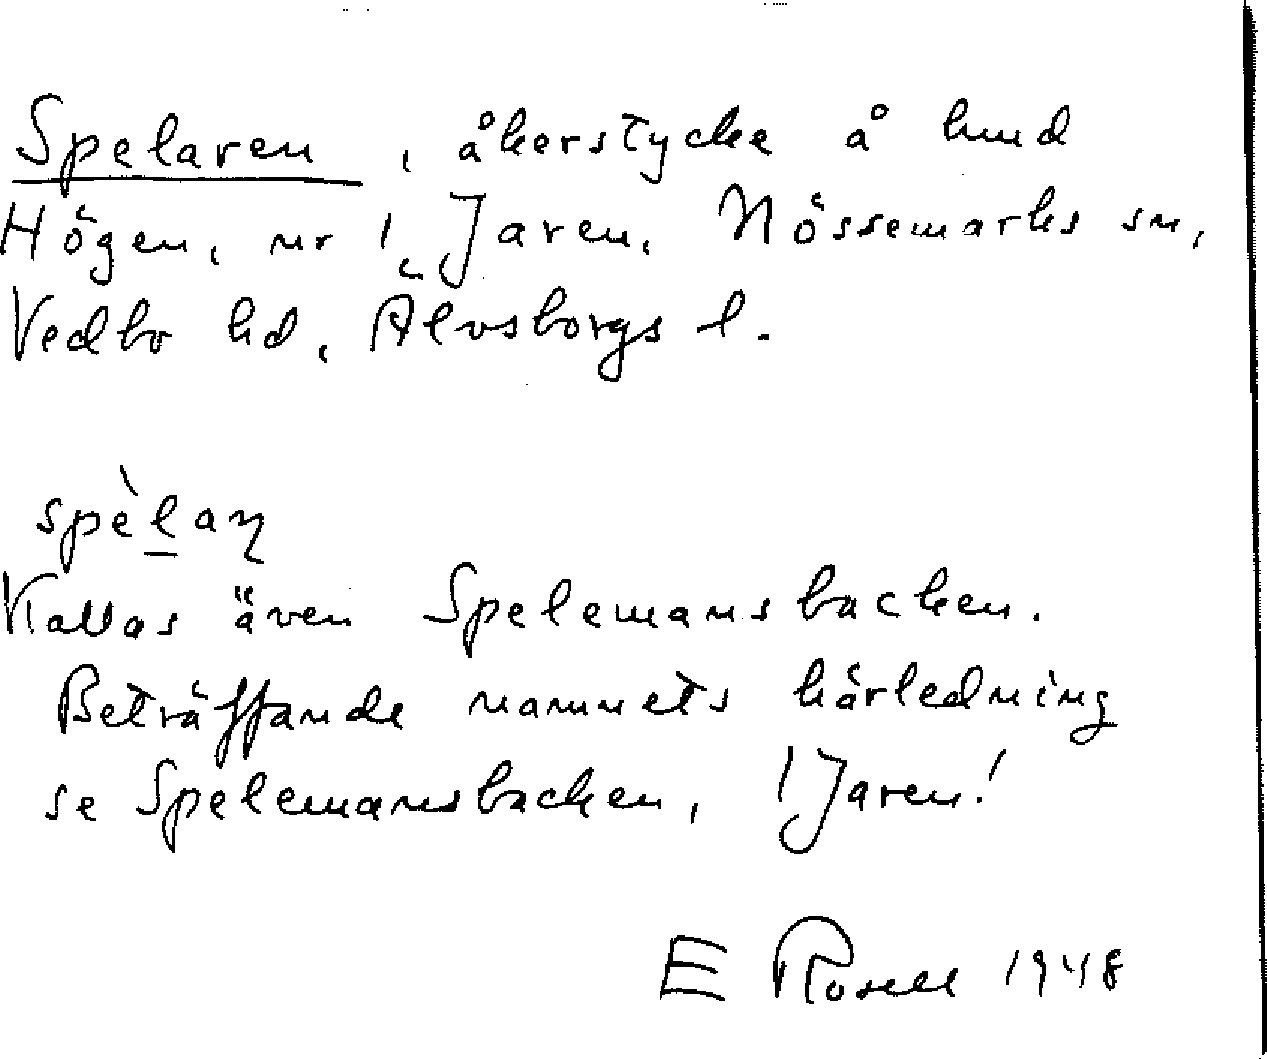 Spelaren, åkerstycke å hmd
Högen, nr 1, Jaren, Nössemarks sn,
Vedbo hd, Älvsborgs l.
spèlaɳ
Kallas även Spelemansbacken.
Beträffande namnets härledning
se Spelemansbacken, 1 Jaren!
E Rosell 1948